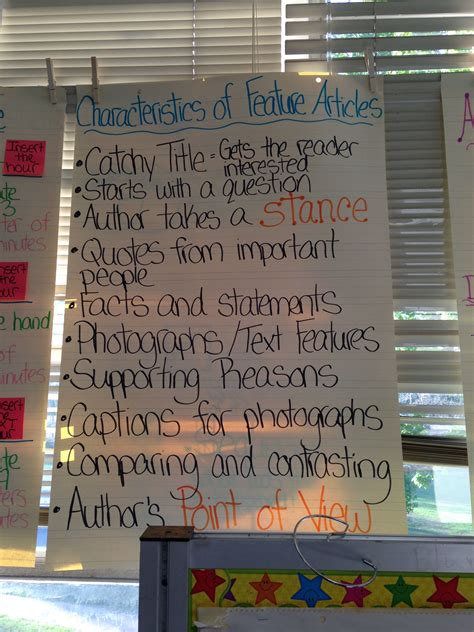 Characteristics of Feature Articles
• Catchy Title = Gets the reader
interested
• Starts with a question
• Author takes a stance
• Quotes from important
people
• Facts and statements
• Photographs/Text Features
• Supporting Reasons
• Captions for photographs
• Comparing and contrasting
• Author's Point of View
Insert
the
hour
minutes
hand